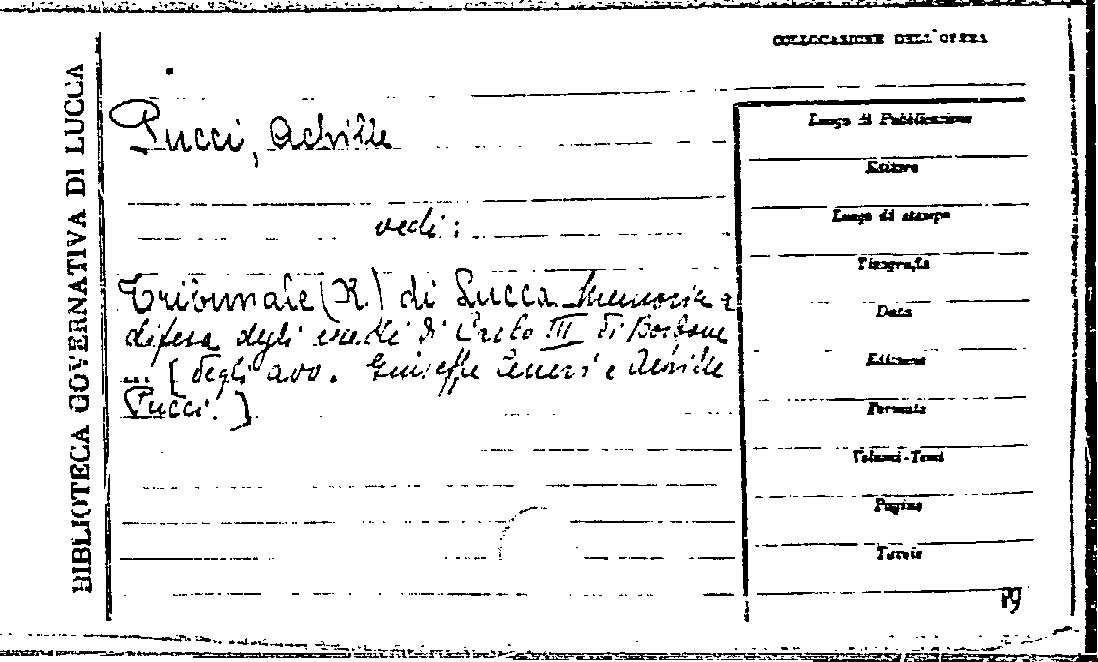 COLLOCAZIONE DELL'OPERA
BIBLIOTECA GOVERNATIVA DI LUCCA
Pucci, Achille
vedi:
Tribunale (R.) di Lucca. Memoria a
difesa degli eredi di Carlo III di Borbone
... [degli avv. Giuseppe Ceneri e Achille
Pucci.]
Luogo di Pubblicazione
Editore
Luogo di stampa
Tipografia
Data
Edizione
Formato
Volumi-Tomi
Pagine
Tavole